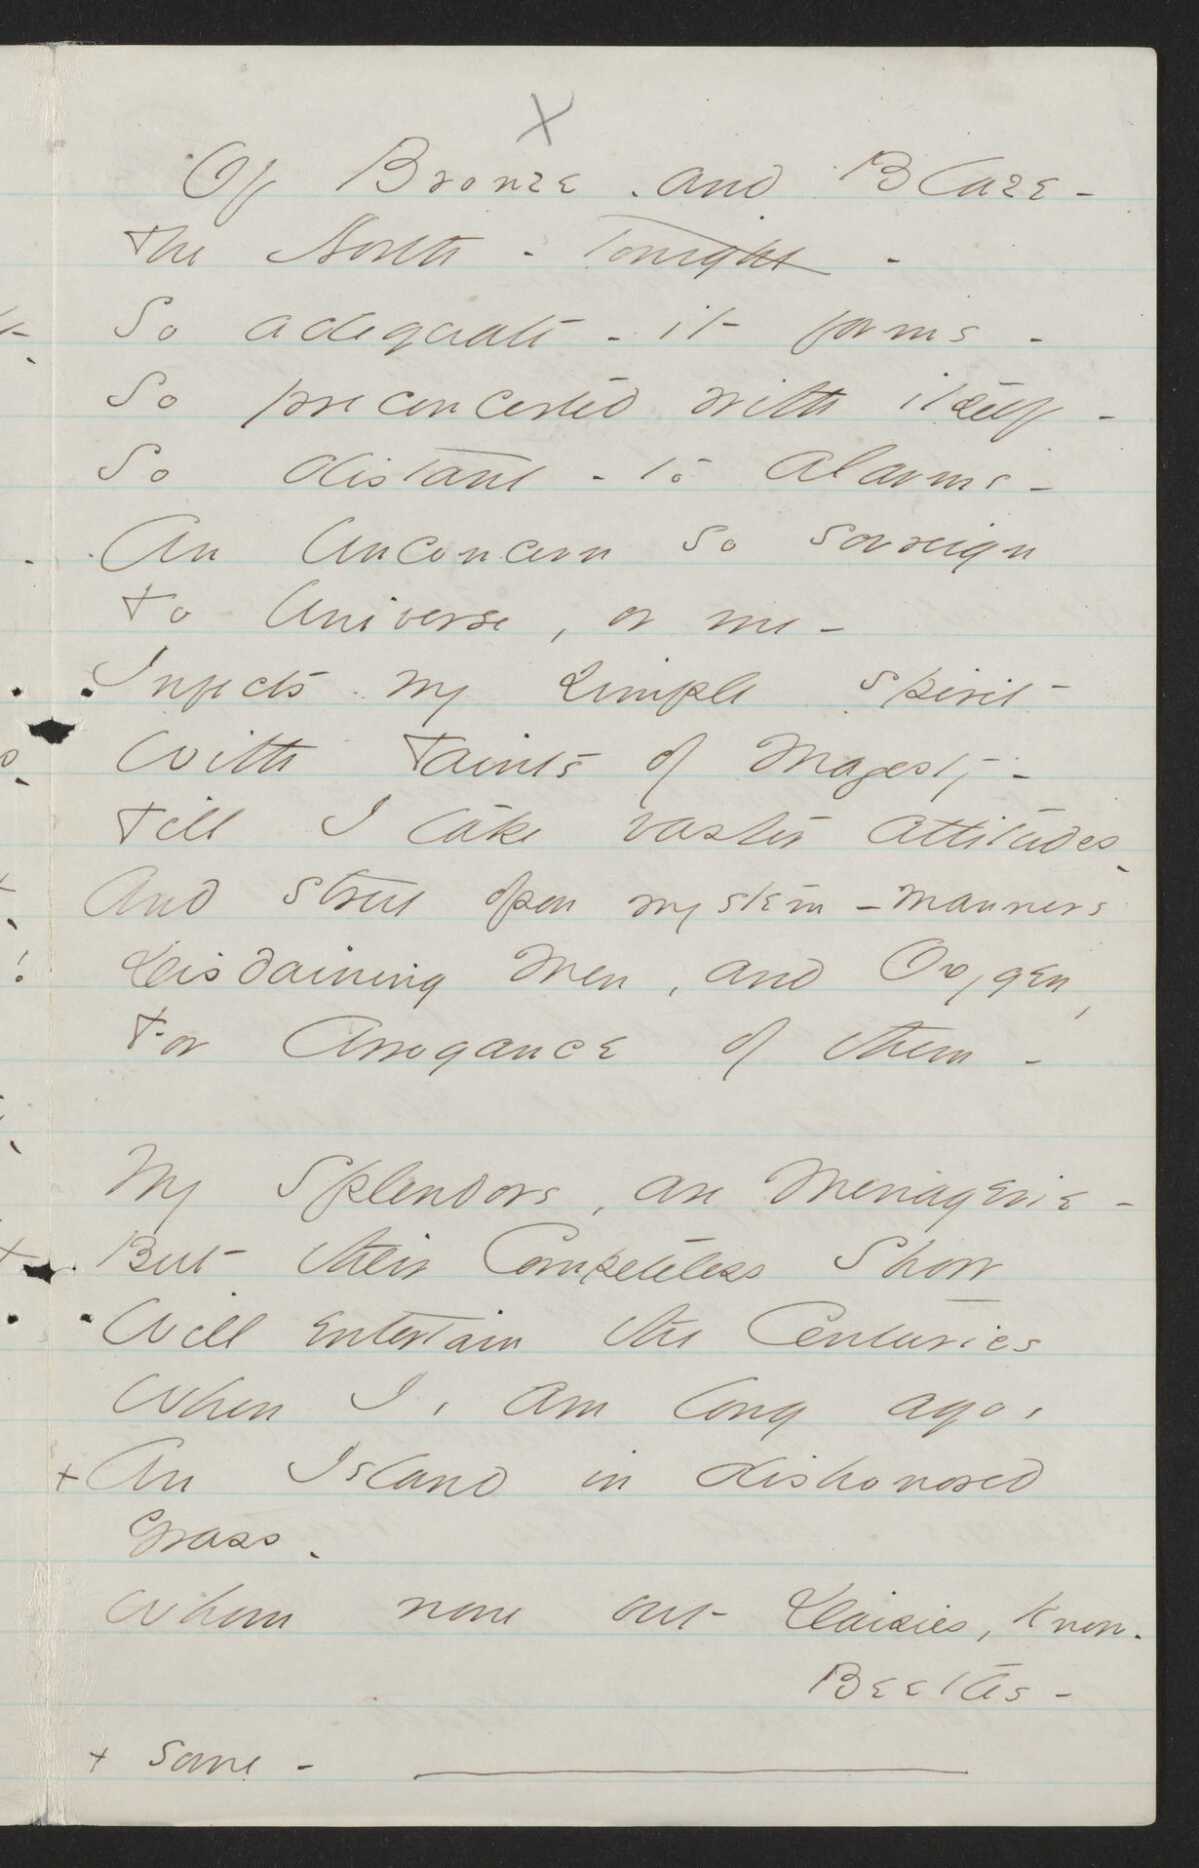 X
Of Bronze - and Blaze -
The North - Tonight -
So adequate - it forms -
So preconcerted with itself -
So distant - to alarms -
An Unconcern so sovreign
To Universe, or me -
Infects my simple spirit
With Taints of Majesty -
Till I take vaster attitudes -
And strut opon my stem -
Disdaining Men, and Oxygen,
For Arrogance of them -
My Splendors, are Menagerie -
But their Competeless Show
Will entertain the Centuries
When I, am long ago,
+ An Island in dishonored
Grass -
Whom none but Daisies, know.
Beetles -
+ Some -
manners